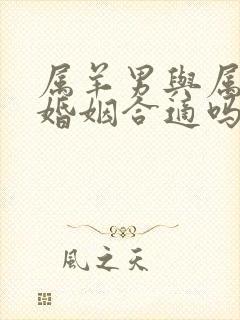 属羊男與属
婚姻合適吗
風之天